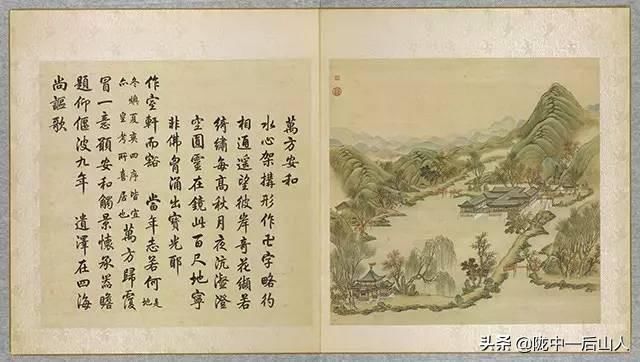 萬方安和
水心架搆形作卍字略彴
相通遥望彼岸奇花纈若
綺繡每髙秋月夜沆瀣澄
空圓靈在鏡此百尺地寧
非佛胷涌出寶光耶
作室軒而豁 當年志若何 是地
冬燠夏爽四序皆宜亦 皇考所喜居也 萬方歸覆
冒一意願安和觸景懷承器瞻
題仰偃波九年 遺澤在四海
尚謳歌
头条 @陇中一后山人